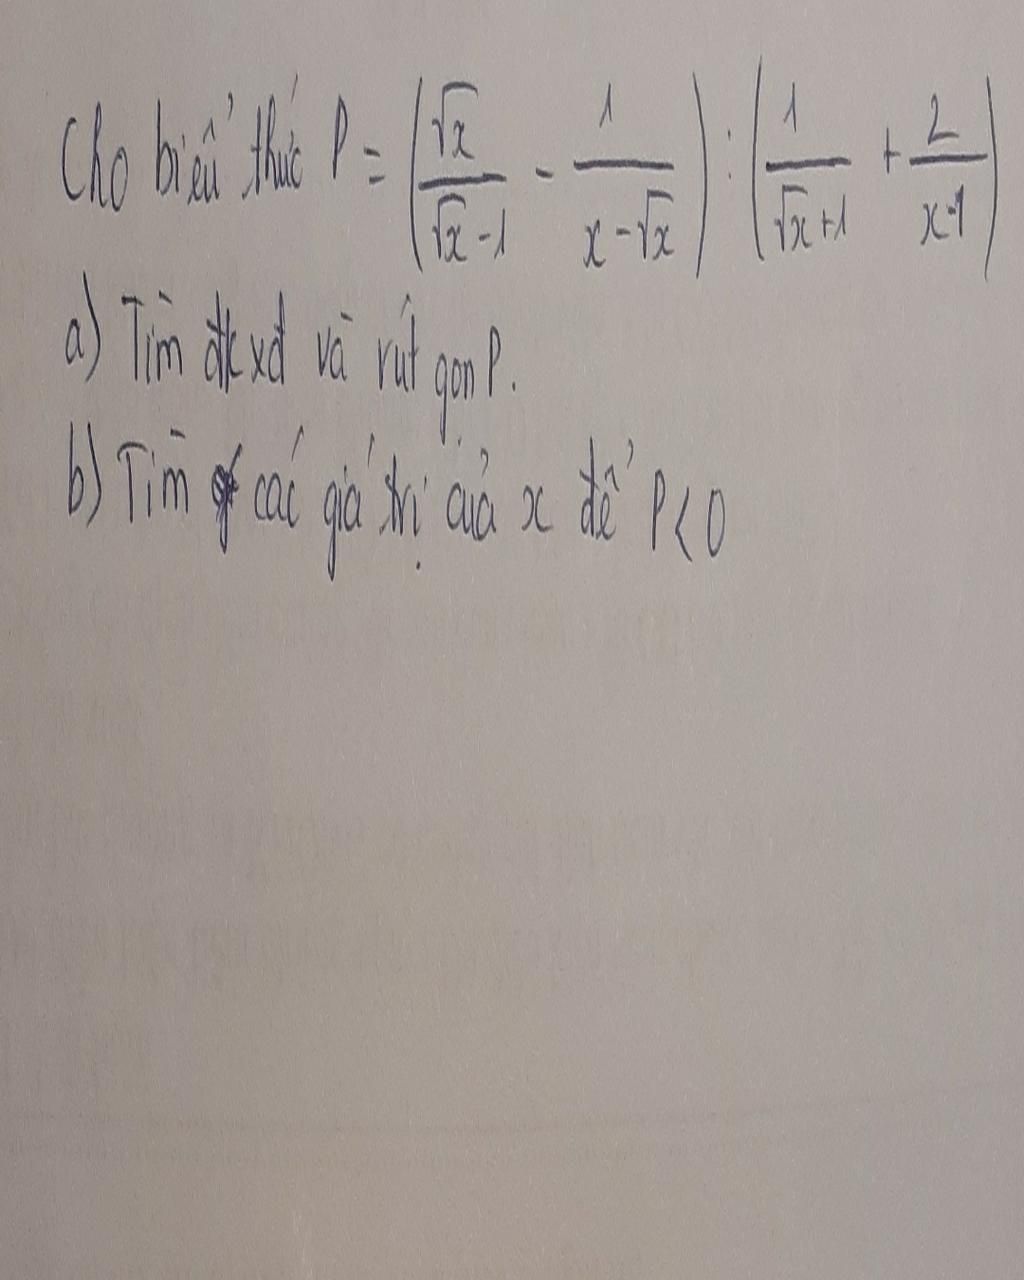 Cho biểu thức P = (√x/(√x-1) - 1/(x-√x)) : (1/(√x+1) + 2/(x-1))
a) Tìm đkxđ và rút gọn P.
b) Tìm các giá trị của x để P < 0